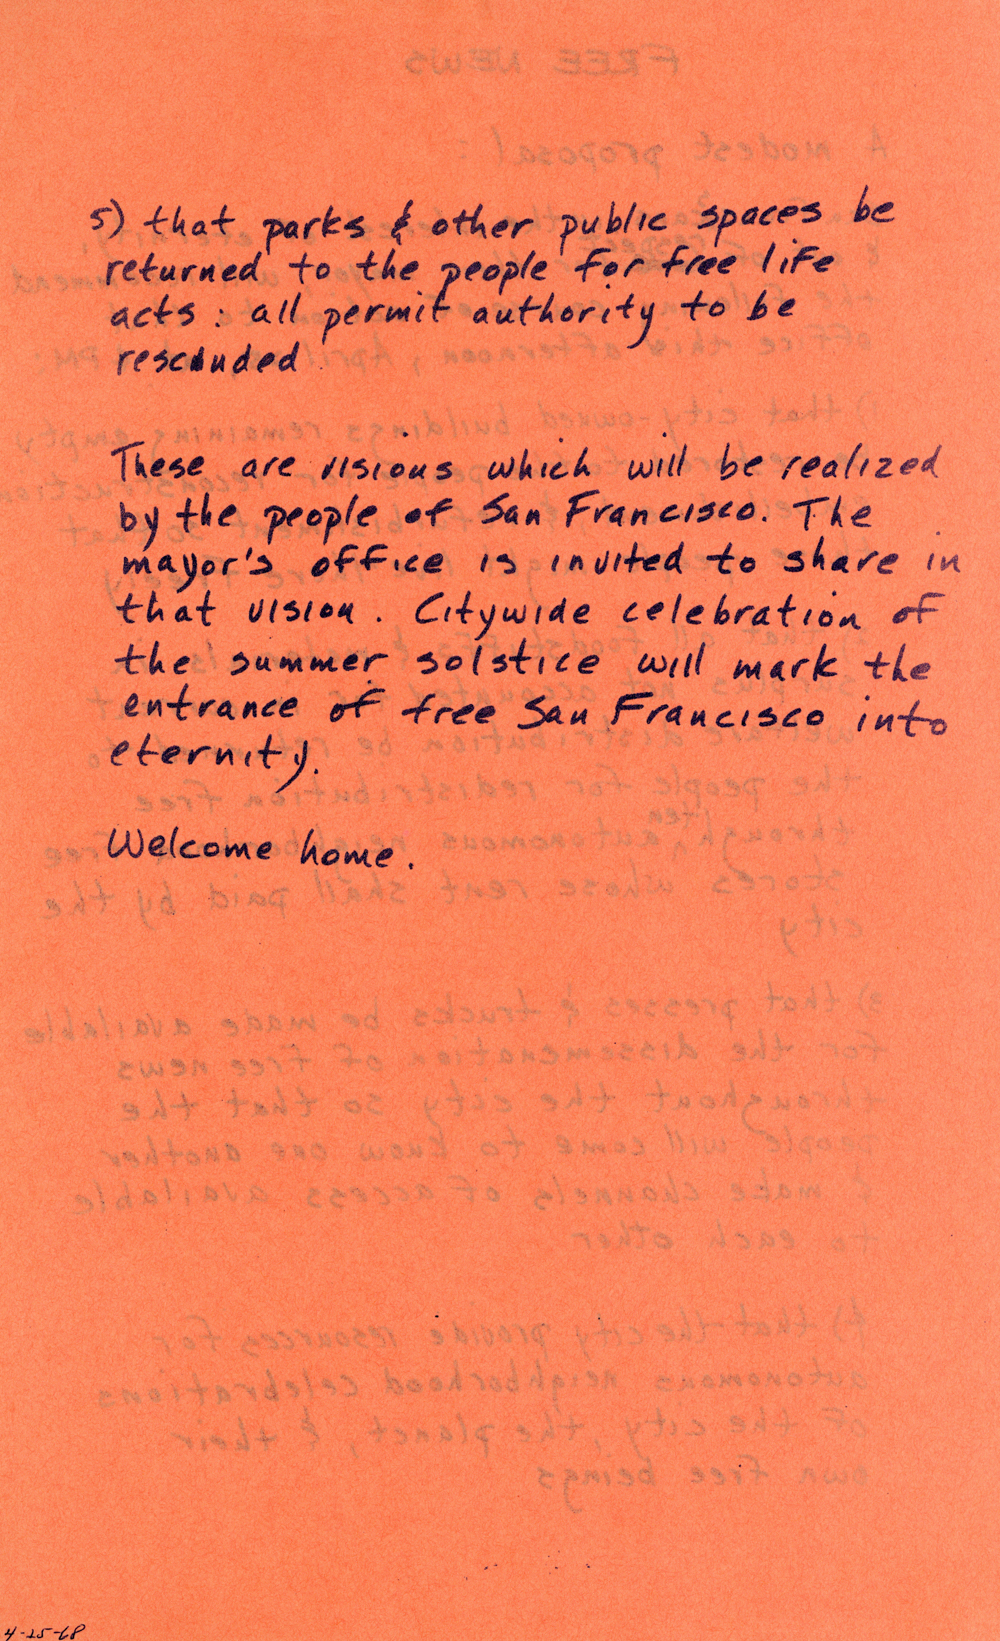 5) that parks & other public spaces be
returned to the people for free life
acts : all permit authority to be
rescinded
These are visions which will be realized
by the people of San Francisco. The
mayor's office is invited to share in
that vision. Citywide celebration of
the summer solstice will mark the
entrance of free San Francisco into
eternity.
Welcome home.
4-25-68